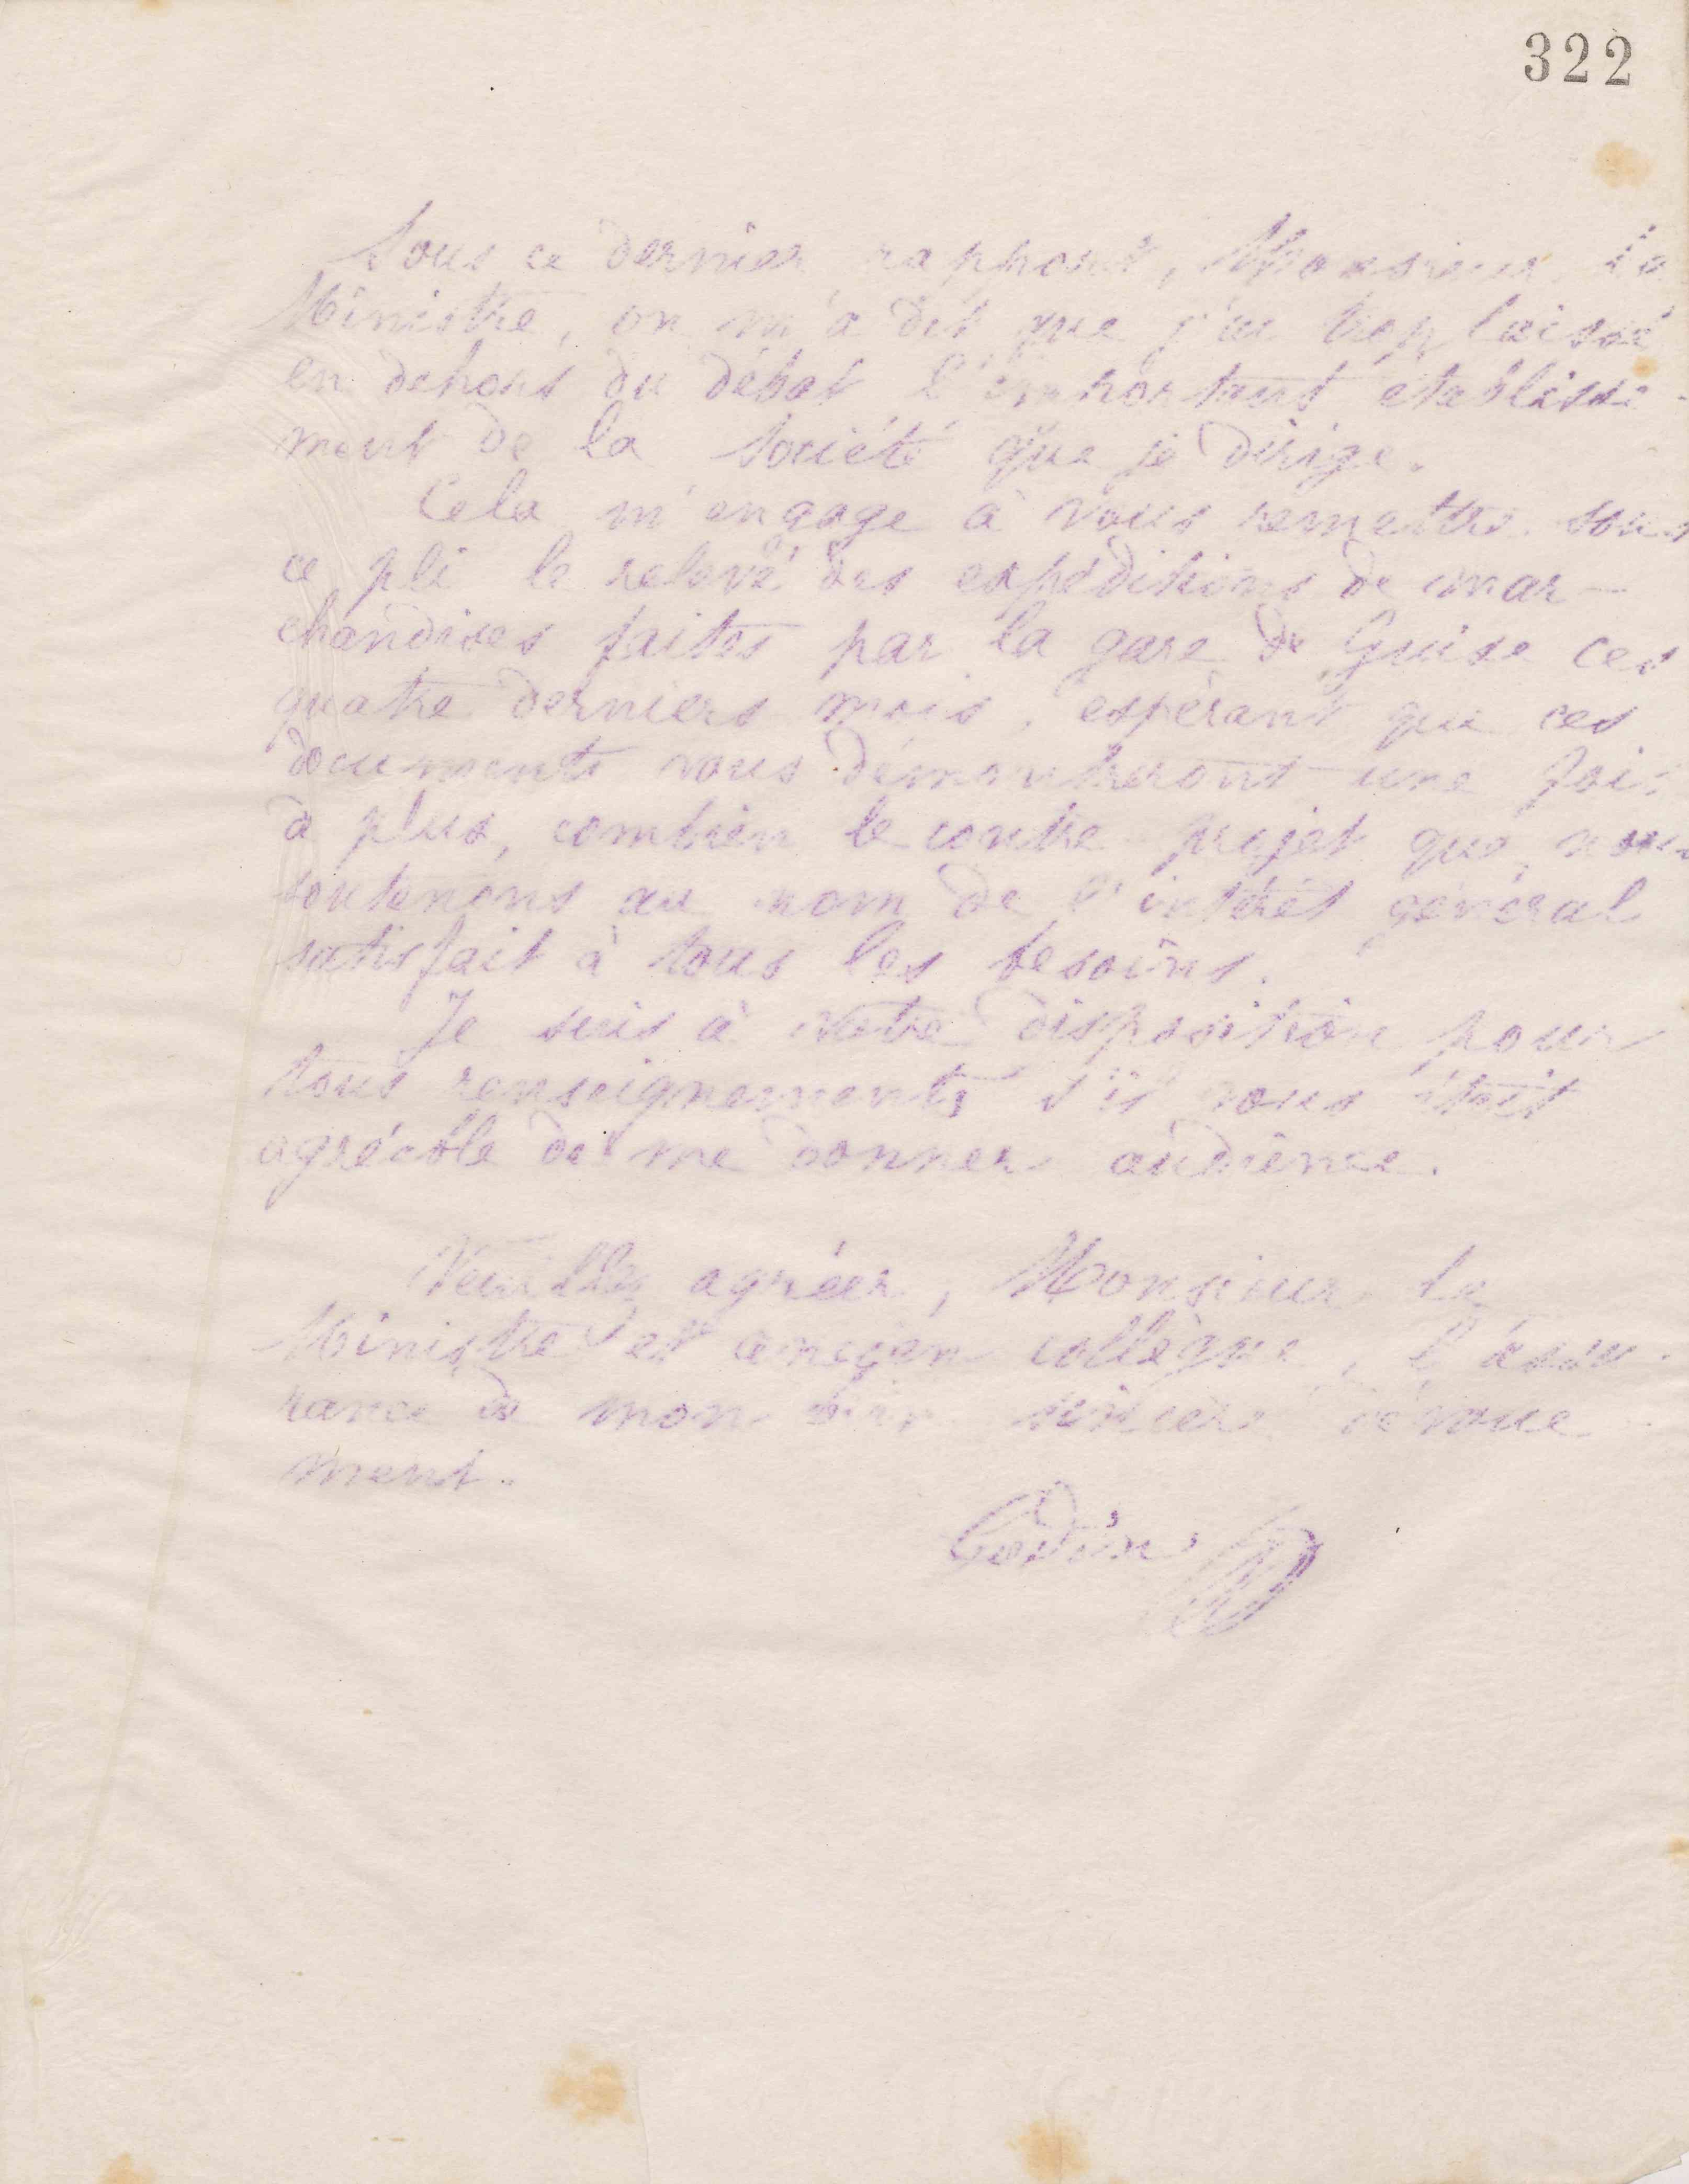 322
Sous ce dernier rapport, Monsieur le
Ministre, on m'a dit que j'ai trop laissé
en dehors du débat l'important établisse-
ment de la Société que je dirige.
Cela m'engage à vous remettre sous
ce pli le relevé des expéditions de mar-
chandises faites par la gare de Guise ces
quatre derniers mois, espérant que ces
documents vous démontreront une fois
de plus, combien le contre-projet que nous
soutenons au nom de l'intérêt général
satisfait à tous les besoins.
Je suis à votre disposition pour
tous renseignements s'il vous était
agréable de me donner audience.
Veuillez agréer, Monsieur le
Ministre et ancien collègue, l'assu-
rance de mon bien sincère dévoue-
ment.
Godin